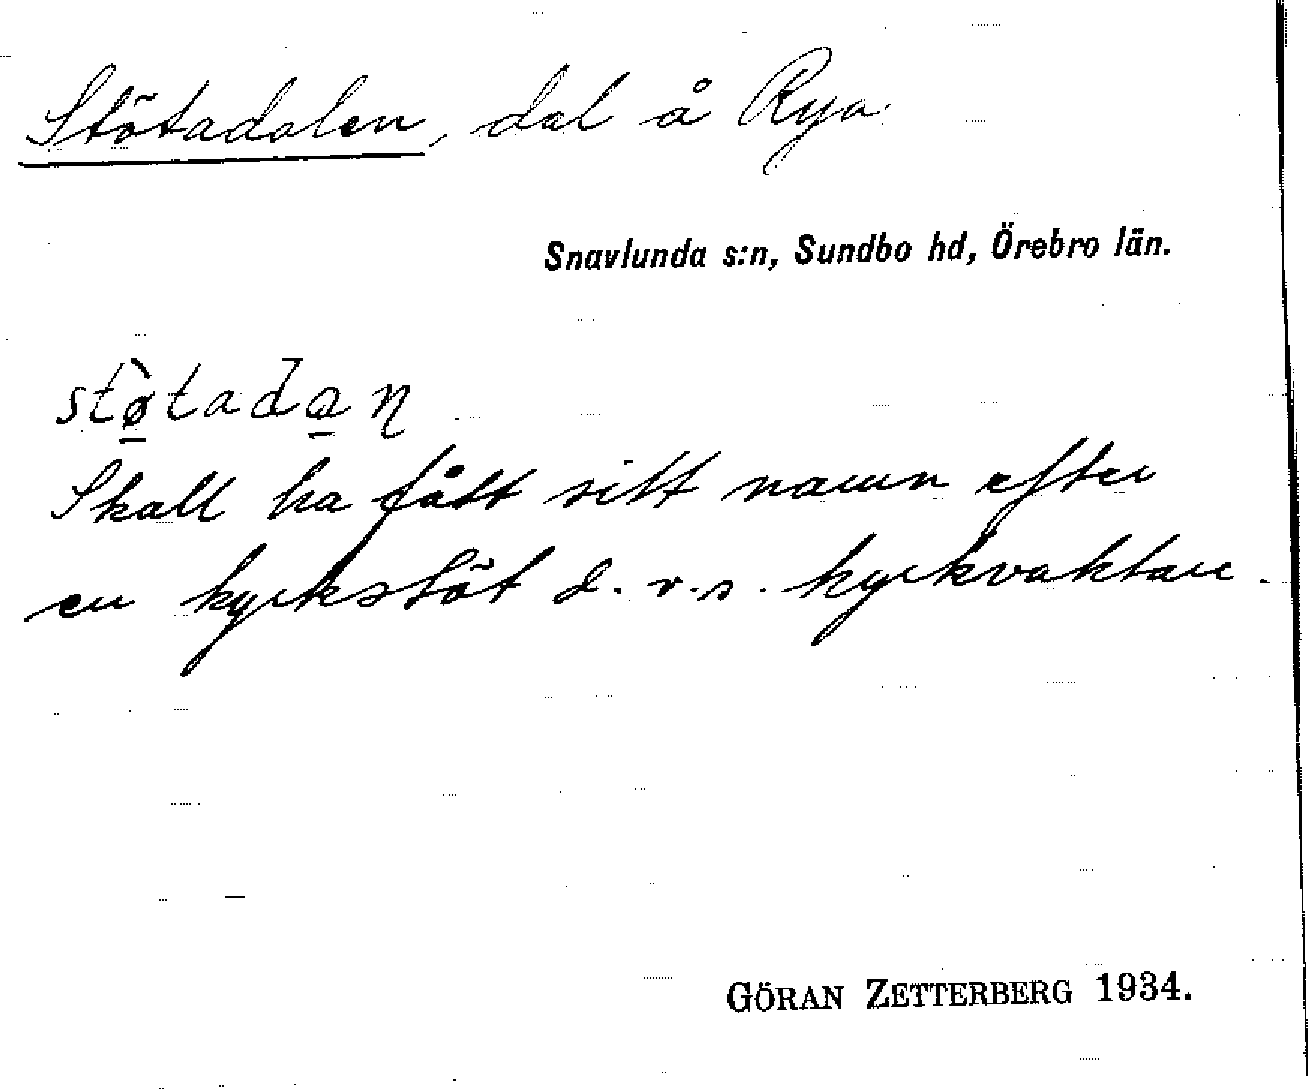 Stötadalen, dal å Rya
Snavlunda s:n, Sundbo hd, Örebro län.
stø̀tadan
Skall ha fått sitt namn efter
en kyrkstöt d.v.s. kyrkvaktare.
GÖRAN ZETTERBERG 1934.